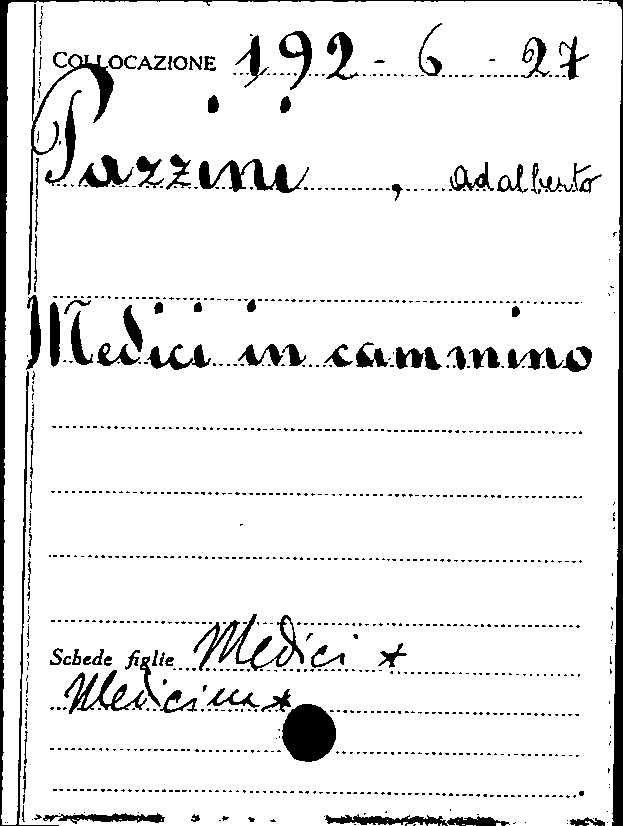 COLLOCAZIONE 192-6-27
Pazzini, Adalberto
Medici in cammino
Schede figlie Medici *
Medicina *